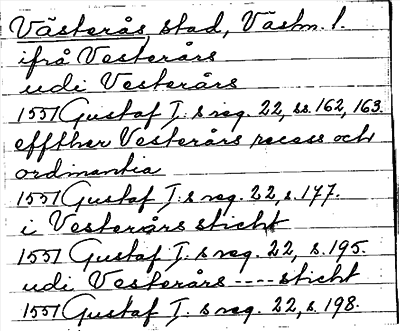 Västerås, stad, Västm. l.
ifrå Vesterårs
udi Vesterårs
1551 Gustaf I:s reg. 22, ss. 162, 163.
effther Vesterårs recess och
ordinantia
1551 Gustaf I:s reg. 22, s. 177.
i Vesterårs sticht
1551 Gustaf I:s reg. 22, s. 195.
udi Vesterårs ---- sticht
1551 Gustaf I:s reg. 22, s. 198.